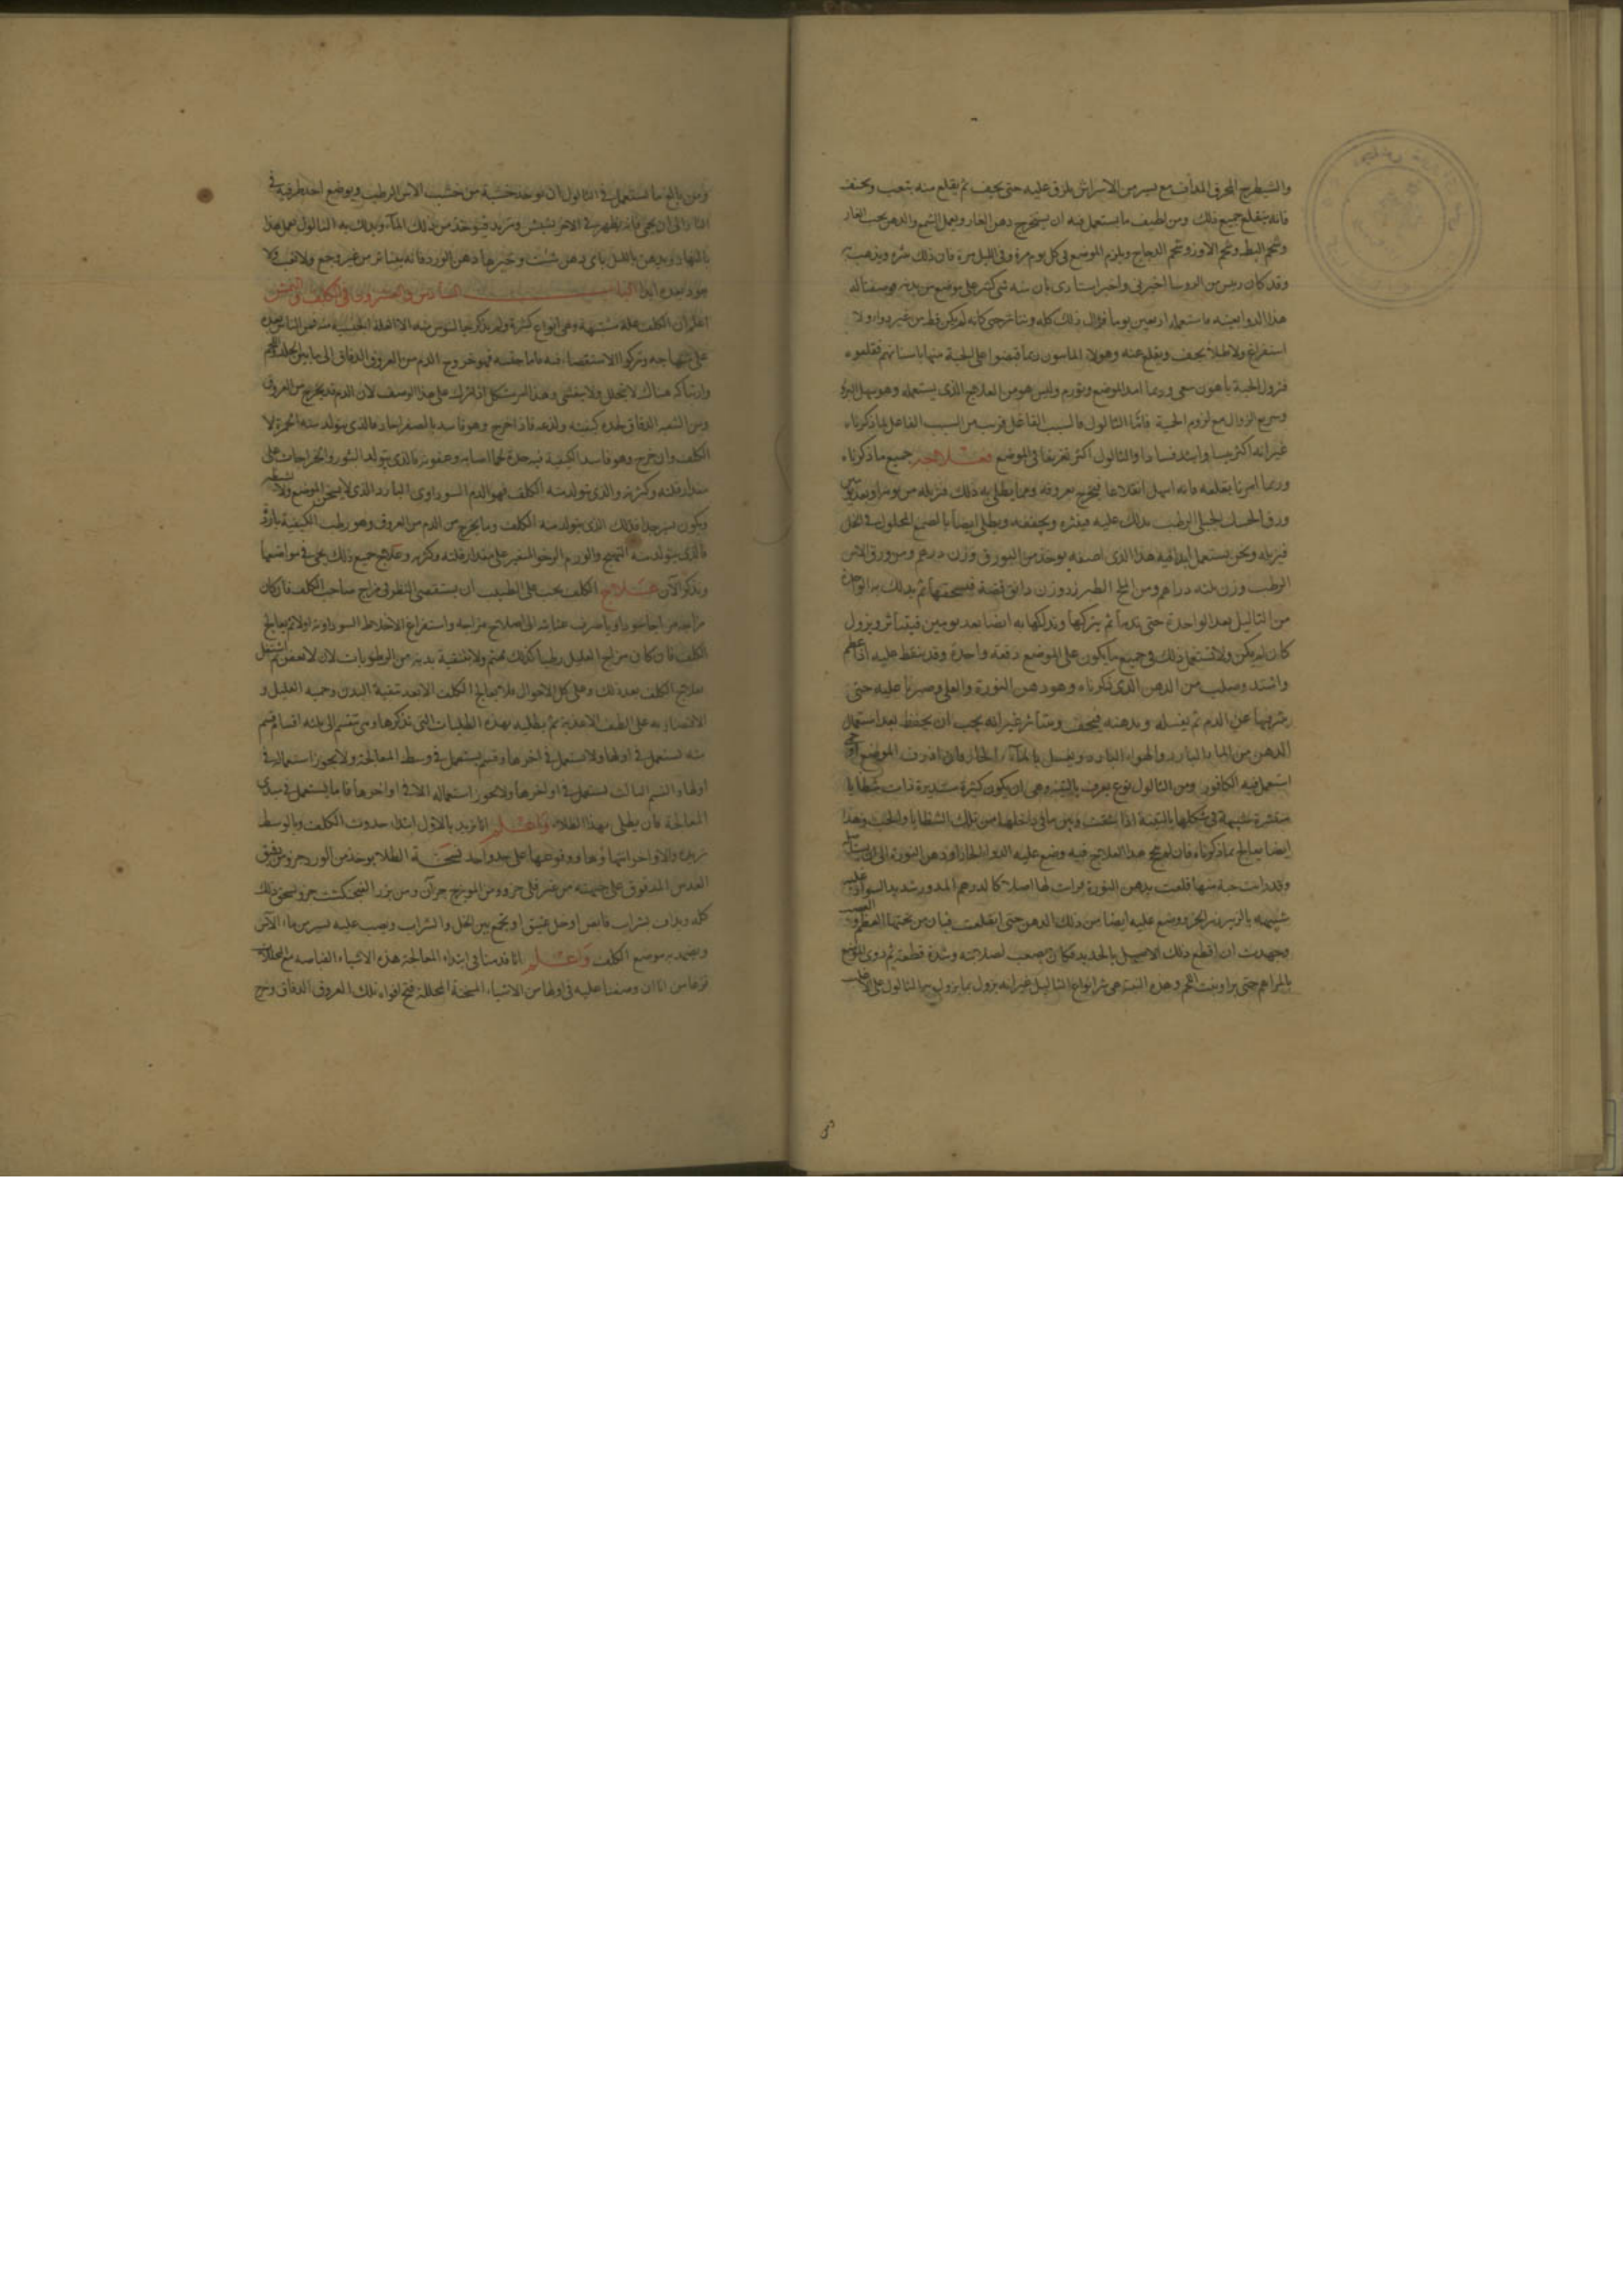 والشيطرج المحرق المداف مع يسير من الاسراش يلزق عليه حتى يجف ثم يقلع منه بتعب ويجفف
فانه ينقلع جميع ذلك ومن لطيف ما يستعمل فيه ان يستخرج دهن الغار ويعمل الشمع والدهن بحب الغار
وشحم البط وشحم الاوز وشحم الدجاج ويلزم الموضع في كل يوم مرة وفي الليل مرة فان ذلك ويذهب به
وقد كان رئيس من الروسا اخبرني واخبر استادى بان به شي كثير على موضع من بدنه فوصفنا له
هذا الدوا بعينه فاستعمله اربعين يوما فزال ذلك كله وتناثر حتى كانه لم يكن قط من غير دواء ولا
استفراغ ولا طلاء يجف ويقلع عنه وهولا الماسون ربما قبضوا على الحبة منها باسنانهم فقلعوه
فتزول الحبة باهون سعى وربما امد الموضع وتورم وليس هو من العلاج الذى يستعمله وهو سهل البرؤ
وسريع الزوال مع لزوم الحمية فاما الثالول فالسبب الفاعل قريب من السبب الفاعل لما ذكرناه
غير انه اكثر يبسا واشد فسادا والثالول اكثر تفريقا في الموضع فعلاجه جميع ما ذكرناه
وربما امرنا بقلعه فانه اسهل انقلاعا فيخرج بعروقه ومما يطلى به ذلك فنزيله من يومه او بعد يومين
ورق الحسك الجبلى الرطب يدلك عليه فيقشره ويجففه ويطلى ايضا بالصمغ المحلول في الخل
فنزيله ونحن نستعمل ابدا فيه هذا الذى اصفه يوخذ من البورق وزن درهم ومن ورق الاس
الرطب وزن ثلثه دراهم ومن الملح الطبرزد وزن دانق فضة فيسحقها ثم يدلك به الواحدة
من الثاليل بعد الواحدة حتى يدما ثم يتركها ويدلكها به ايضا بعد يومين فيتناثر ويزول
كان لم يكن ولا تستعمل ذلك في جميع ما يكون على الموضع دفعة واحدة وقد ينقط عليه اذا عظم
واشتد وصلب من الدهن الذى ذكرناه وهو دهن النورة والقلى وصبرنا عليه حتى
ينزيها عن الدم ثم يغسله ويدهنه فيجف ويتناثر غير انه يجب ان يحفظ بعد استعمال
الدهن من الماء البارد والهواء البارد ويغسل بالماء الحار فان اقرف الموضع او حمى
استعمل فيه الكافور ومن الثالول نوع يعرف بالتينه وهى ان يكون كبيرة مستديرة ذات شظايا
منقشرة شبيهة في شكلها بالتينة اذا شقت وبين ما في داخلها من تلك الشظايا والحب وهذا
ايضا يعالج بما ذكرناه فان لم ينجح هذا العلاج فيه وضع عليه الدوا الحاد او دهن النورة الى ان
وقد رايت حبة منها قلعت بدهن النورة فرايت لها اصلا كالدرهم المدور شديد السواد
شبيهه بالزبيرة الجزر ووضع عليه ايضا من ذلك الدهن حتى انقلعت فبان من تحتها العظم
وجهدت ان اقطع ذلك الاصل بالحديد فكان يصعب لصلابته وشدة قطعه ثم دوى الموضع
بالمراهم حتى برا ونبت اللحم وهذه التينة هى شر انواع الثاليل غير انه يزول بما يزول به الثالول على
ومن بالغ ما يستعمل في الثالول ان توخذ خشبة من خشب الاس الرطب ويوضع احد طرفيه في
النار الى ان يحمى فانه يظهر في الاخر نشيش وتزبد فيوخذ من ذلك الماء ويدلك به الثالول يعمل هذا
بالنهار ويدهن بالليل باى دهن شئت وخيرها دهن الورد فانه يتناثر من غير وجع ولا تعب ولا
يعود بعده ابدا الباب السادس والعشرون في الكلف والنمش
اعلم ان الكلف علة مشتبهة وهى انواع كثيرة ولم يذكر جالينوس منه الا العلة الحبيسه
على منهاجه وتركوا الاستقصا فيه فاما حقيقته فهو خروج الدم من العروق الدقاق الى ما بين الجلد واللحم
وارتباكه هناك لا يتحلل ولا يتفشى وهذا امر مشكل اذا ترك على هذا الوصف لان الدم قد يخرج من العروق
ومن الشعب الدقاق لحده كيفيته ولذعه فاذا خرج وهو فاسد بالصفراء الحاد فالذى يتولد منه الحمرة لا
الكلف وان خرج وهو فاسد الكيفية فيه حدة لحما اصابه وعفونه فالذى يتولد البثور والخراجات على
مقدار قلته وكثرته والذى يتولد منه الكلف فهو الدم السوداوى البارد الذى لا يسخن الموضع ولا
ويكون يسير جدا فذلك الذى يتولد منه الكلف وما يخرج من الدم من العروق وهو رطب الكيفية بارد
فالذى يتولد منه التهيج والورم الرخو المتغير على مقدار قلته وكثرته وعلاج جميع ذلك يجى في مواضعها
ونذكر الآن علاج الكلف يجب على الطبيب ان يستقصى النظر في مزاج صاحب الكلف فان كان
مزاجه مزاجا سوداويا صرف عنايته الى اصلاح مزاجه واستفراغ الاخلاط السوداويه اولا ثم يعالج
الكلف فان كان مزاج العليل رطبا كذلك يهتم ولا بتنقية بدنه من الرطوبات لان لا يعفن ثم يشتغل
بعلاج الكلف بعد ذلك وعلى كل الاحوال فلا يعالج الكلف الا بعد تنقية البدن وحميه العليل و
الاقتصار به على الطف الاغذية ثم يطليه بهذه الطليات التى نذكرها وهى تنقسم الى ثلثه اقسام قسم
منه تستعمل في اولها ولا تستعمل في اخرها وقسم يستعمل في وسط المعالجة ولا يجوز استعماله في
اولها والقسم الثالث تستعمل في اواخرها ولا يجوز استعماله الا في اواخرها فاما ما يستعمل في مبدى
المعالجة فان يطلى بهذا الطلاء واعلم انا نريد بالاول ابتداء حدوث الكلف وبالوسط
تزيده والاواخر انتهاوها ووقوفها على حد واحد نسخة الطلا يوخذ من الورد جزو ومن دقيق
العدس المدقوق على جهته من غير قلى جزو ومن المويزج جزآن ومن بزر الفنجنكشت جزو يسحق ذلك
كله ويداف بشراب قابض او خل عتيق او يجمع بين الخل والشراب ويصب عليه يسير من ماء الآس
ويضمد به موضع الكلف واعلم انا قدمنا في ابتداء المعالجة هذه الاشياء القباضه مع المحللة
فزعا من انا ان وضعنا عليه في اولها من الاشياء المسخنة المحللة فتح افواه تلك العروق الدقاق وخرج